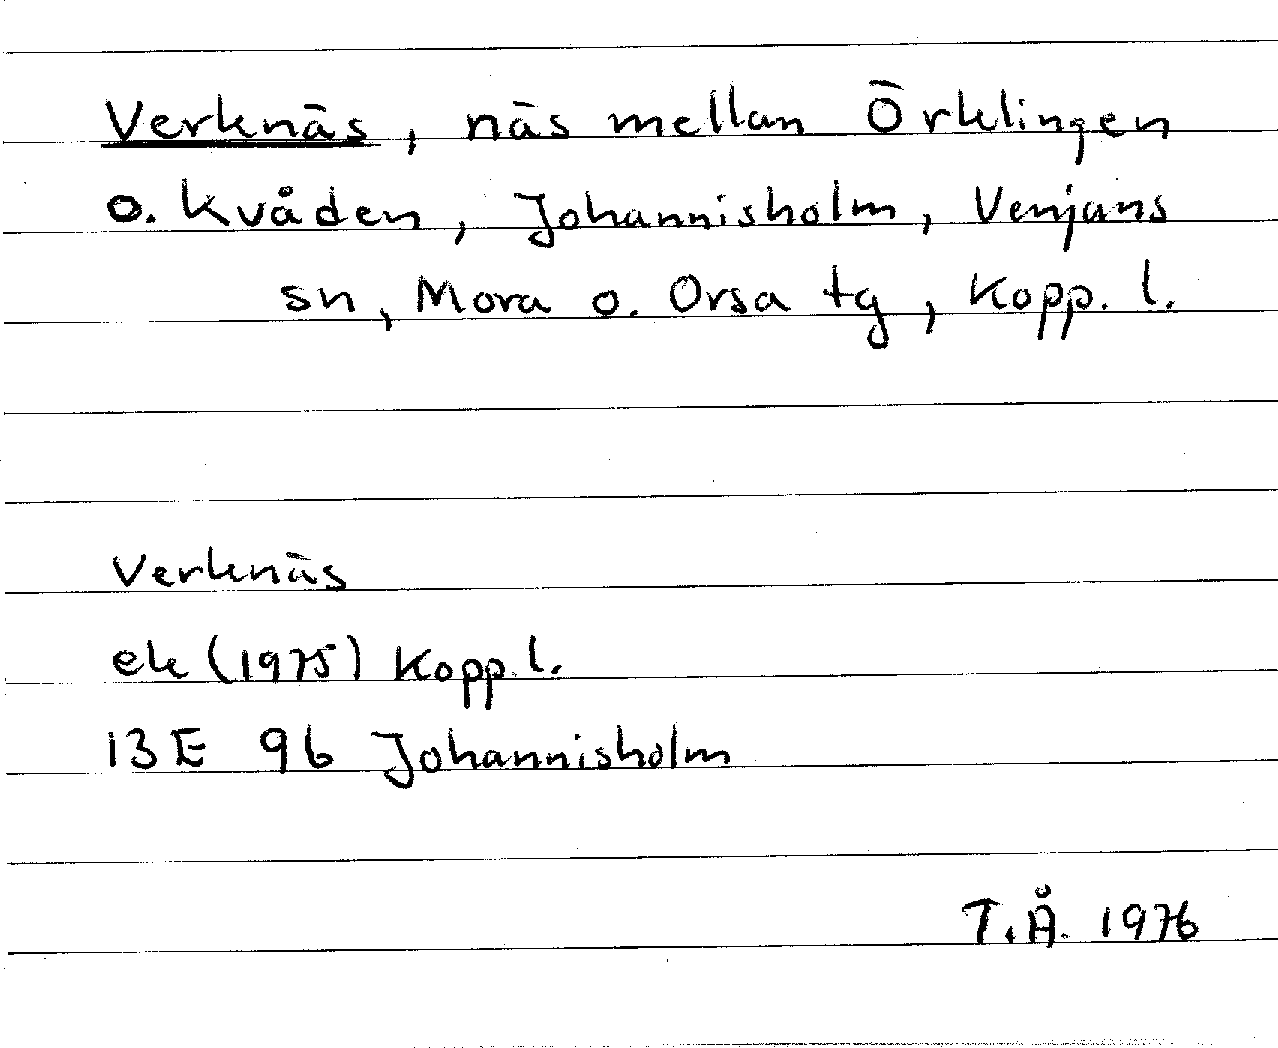 Verknäs, näs mellan Örklingen
o. Kvåden, Johannisholm, Venjans
sn, Mora o. Orsa tg, Kopp. l.
Verknäs
ek (1975) Kopp. l.
13E 9b Johannisholm
T.Å. 1976